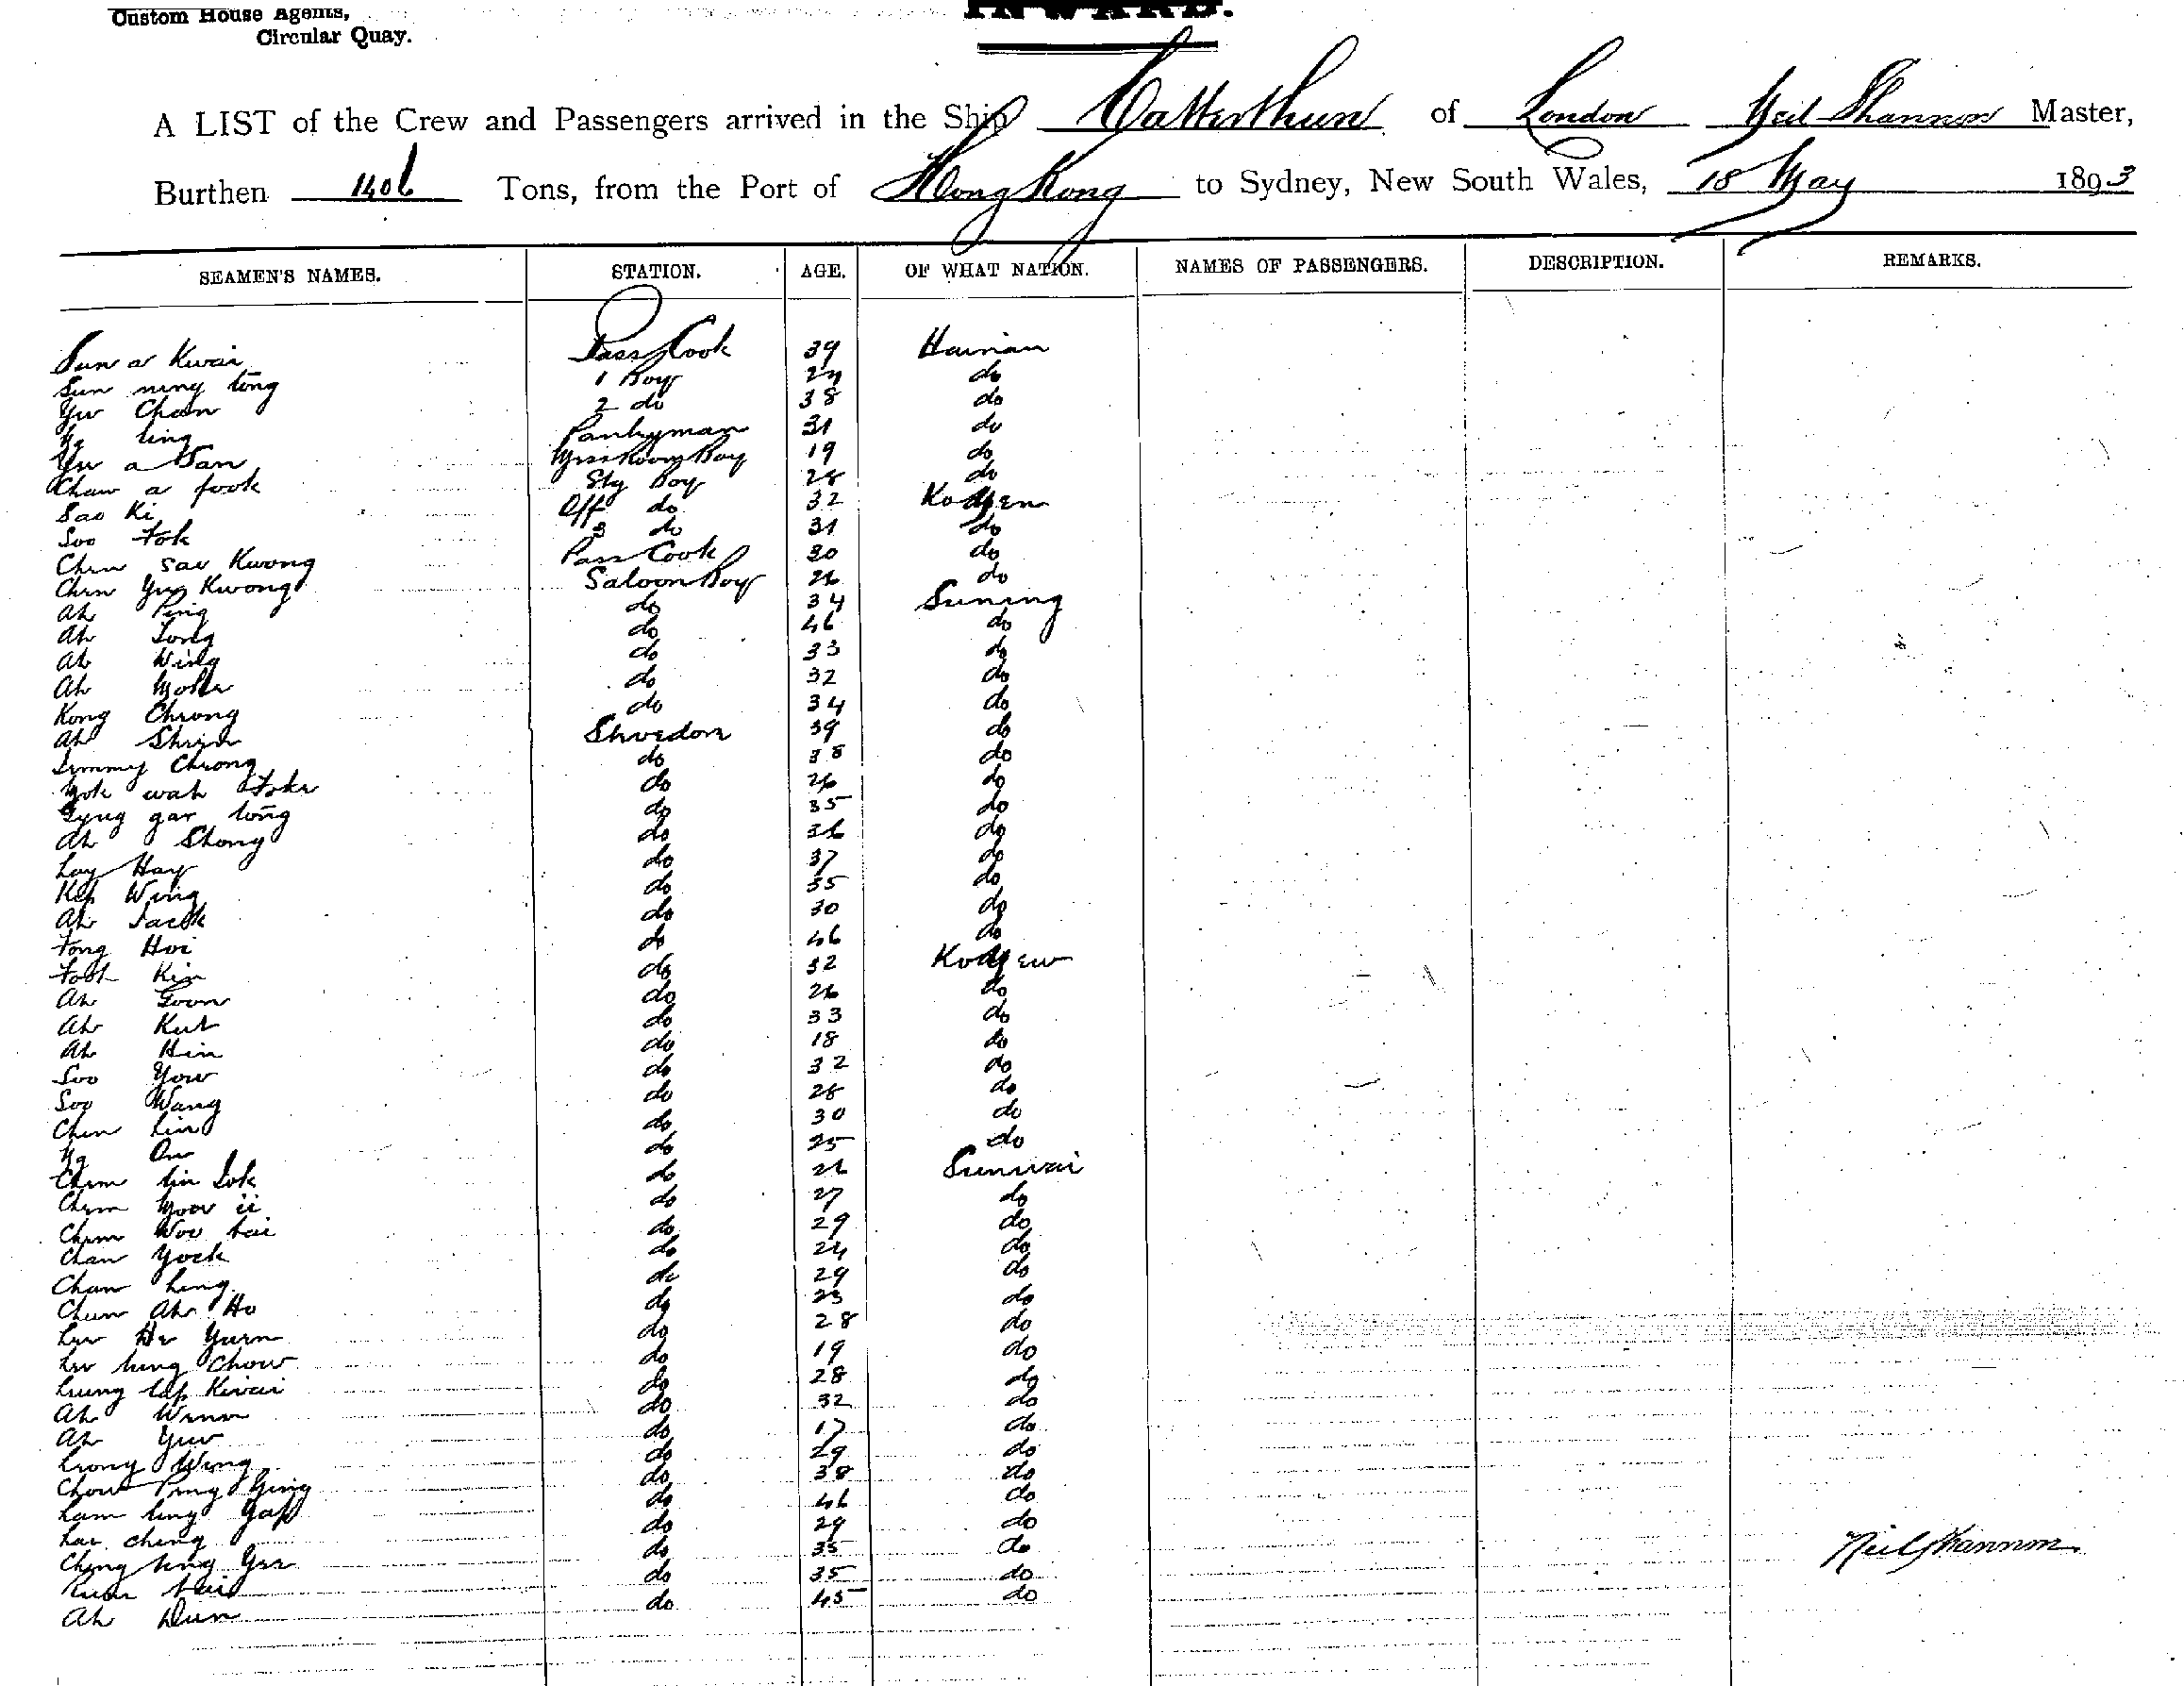 Custom House Agents,
Circular Quay.
INWARD.
A LIST of the Crew and Passengers arrived in the Ship Catterthun of London Neil Shannon Master,
Burthen 1406 Tons, from the Port of Hong Kong to Sydney, New South Wales, 18 May 1893
SEAMEN'S NAMES. STATION. AGE. OF WHAT NATION. NAMES OF PASSENGERS. DESCRIPTION. REMARKS.
Sun a Kwai Pass Cook 39 Hainan
Sun ning tong 1 Boy 24 do
Yu Chan 2 do 38 do
Ng ling Pantryman 31 do
Yu a San Messroom Boy 19 do
Chaw a fook Stg Boy 28 do
Sao Ki Off do 32
Soo Fok 3 do 31 do
Chen Sau Kwong Pass Cook 30 do
Chen Yug Kwong Saloon Boy 26 do
Ah Ping do 34 Suning
Ah Tong do 46 do
Ah Wing do 33 do
Ah do 32 do
Kong Cheong do 34 do
Ah 39 do
Jimmy Cheong do 38 do
wah do 26 do
gar tong do 35 do
Ah Shong do 36 do
Loy Hay do 37 do
Kep Wing do 35 do
Ah Jack do 30 do
Fong Hoi do 46 do
Foot Kin do 32
Ah Goon do 26 do
Ah Kut do 33 do
Ah Hin do 18 do
Soo Yow do 32 do
Soo Wang do 28 do
Chen Lin do 30 do
Ng On do 25 do
Chem lin Sok do 26 Sunwai
Chem do 27 do
Chem Woo tai do 29 do
Chan Yock do 24 do
Chan Leng do 29 do
Chun Ah Ho do 23 do
Lew He Yuen do 28 do
Lew hung Chow do 19 do
Leung tap Kwai do 28 do
Ah Wenn do 32 do
Ah Yuw do 17 do
Leong Wing do 29 do
Chow Ping Ging do 38 do
Lam ling Yap do 46 do
Lai cheng do 29 do
Ching ting Yee do 35 do
Kuan tai do 35 do
Ah Dun do 45 do
Neil Shannon